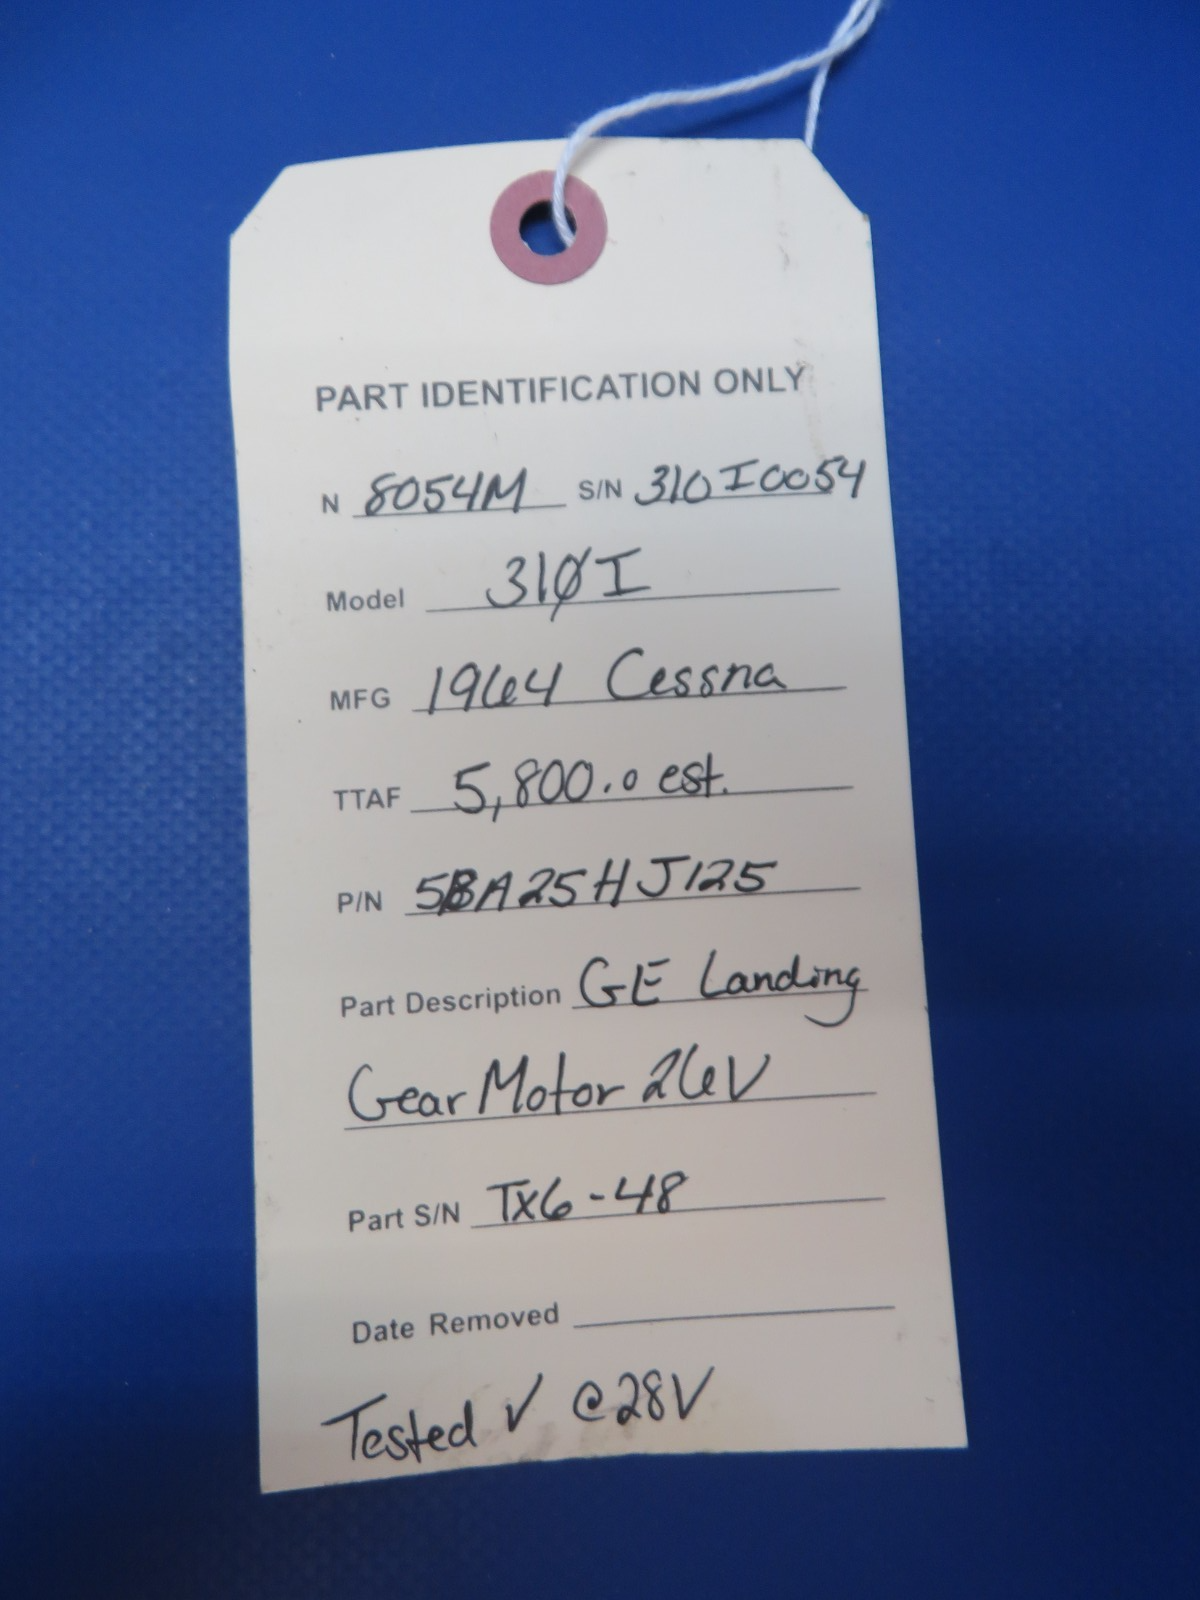 PART IDENTIFICATION ONLY
N 8054M S/N 310I0054
Model 310I
MFG 1964 Cessna
TTAF 5,800.0 est.
P/N 5BA25HJ125
Part Description GE Landing
Gear Motor 26V
Part S/N TX6-48
Date Removed
Tested √ @28V